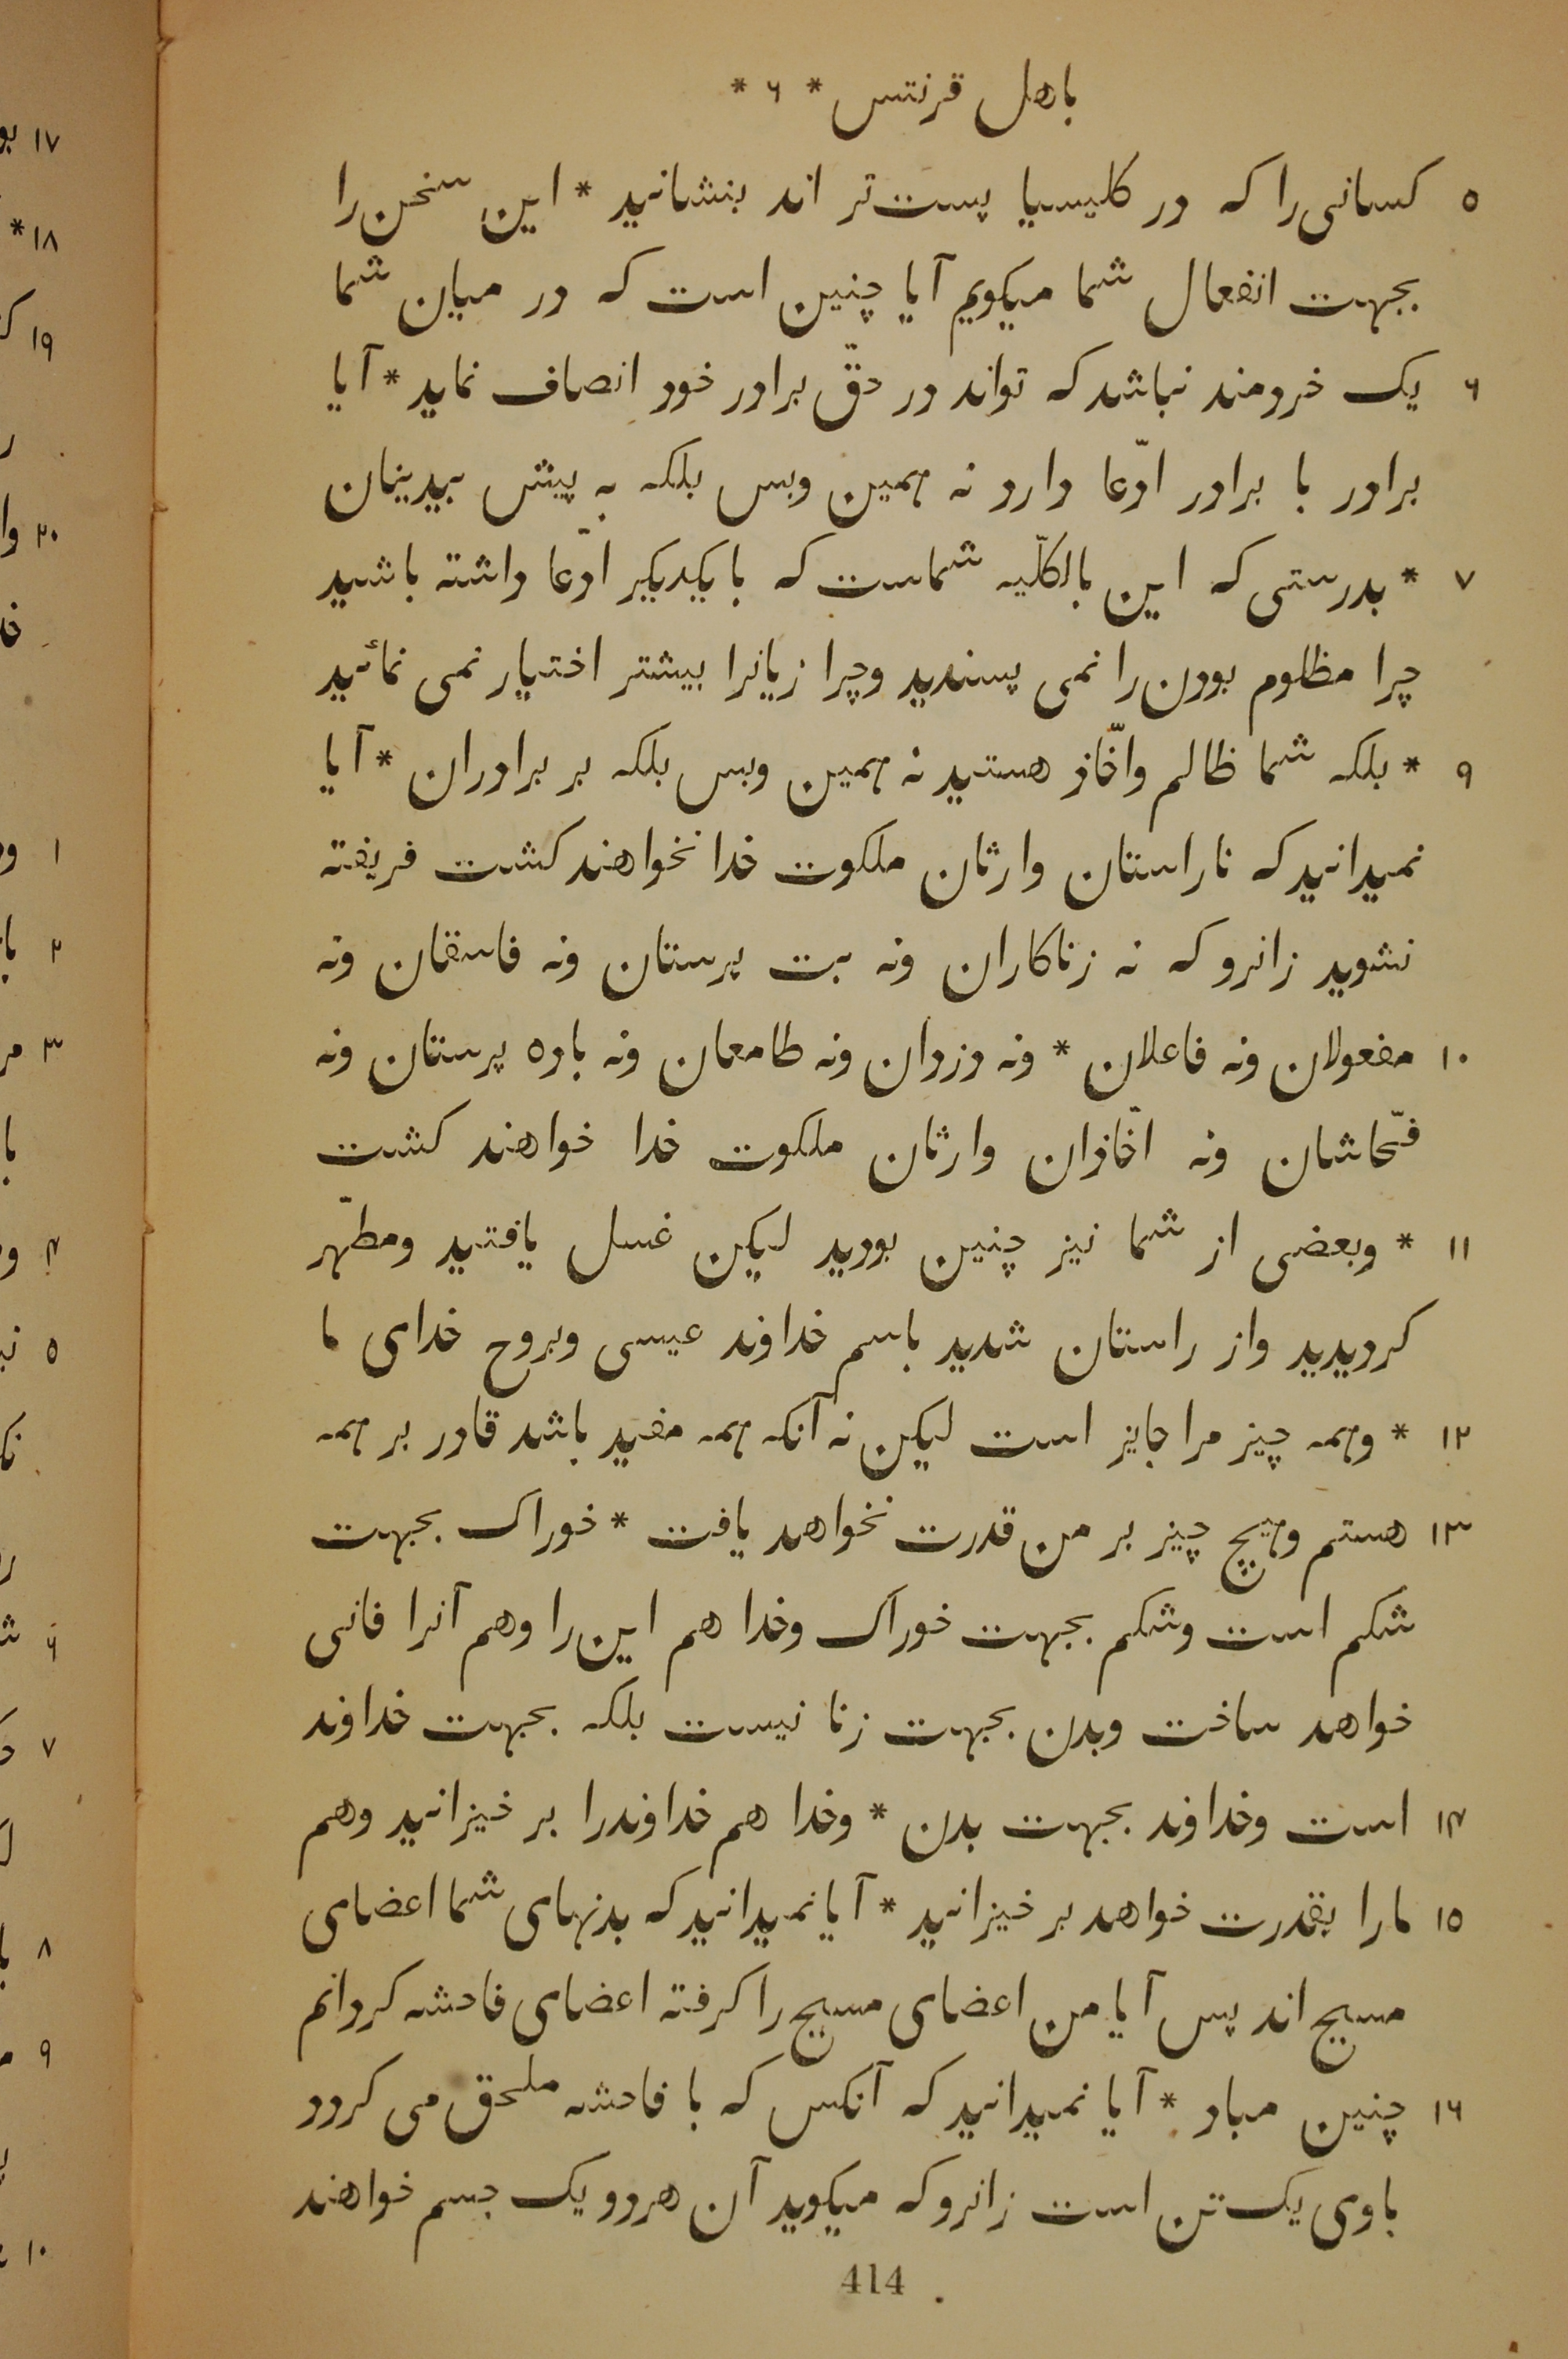 باهل قرنتس * ۶ *
۵ کسانی را که در کلیسیا پست‌تر اند بنشانید * این سخن را
بجهت انفعال شما میکویم آیا چنین است که در میان شما
۶ یک خردمند نباشد که تواند در حقّ برادر خود انصاف نماید * آیا
برادر با برادر ادّعا دارد نه همین وبس بلکه به پیش بیدینان
۷ * بدرستی که این بالکلّیه شماست که با یکدیکیر ادّعا داشته باشید
چرا مظلوم بودن را نمی پسندید وچرا زیانرا بیشتر اختیار نمی نمائید
۹ * بلکه شما ظالم واخّاذ هستید نه همین وبس بلکه بر برادران * آیا
نمیدانید که ناراستان وارثان ملکوت خدا نخواهند کشت فریفته
نشوید زانرو که نه زناکاران ونه بت پرستان ونه فاسقان ونه
۱۰ مفعولان ونه فاعلان * ونه دزدان ونه طامعان ونه باده پرستان ونه
فحّاشان ونه اخّاذان وارثان ملکوت خدا خواهند کشت
۱۱ * وبعضی از شما نیز چنین بودید لیکن غسل یافتید ومطهّر
کردیدید واز راستان شدید باسم خداوند عیسی وبروح خدای ما
۱۲ * وهمه چیز مرا جایز است لیکن نه آنکه همه مفید باشد قادر بر همه
۱۳ هستم وهیچ چیز بر من قدرت نخواهد یافت * خوراک بجهت
شکم است وشکم بجهت خوراک وخدا هم این را وهم آنرا فانی
خواهد ساخت وبدن بجهت زنا نیست بلکه بجهت خداوند
۱۴ است وخداوند بجهت بدن * وخدا هم خداوندرا بر خیزانید وهم
۱۵ مارا بقدرت خواهد بر خیزانید * آیا نمیدانید که بدنهای شما اعضای
مسیح اند پس آیا من اعضای مسیح را کرفته اعضای فاحشه کردانم
۱۶ چنین مباد * آیا نمیدانید که آنکس که با فاحشه ملحق می کردد
باوی یک تن است زانرو که میکوید آن هردو یک جسم خواهند
414